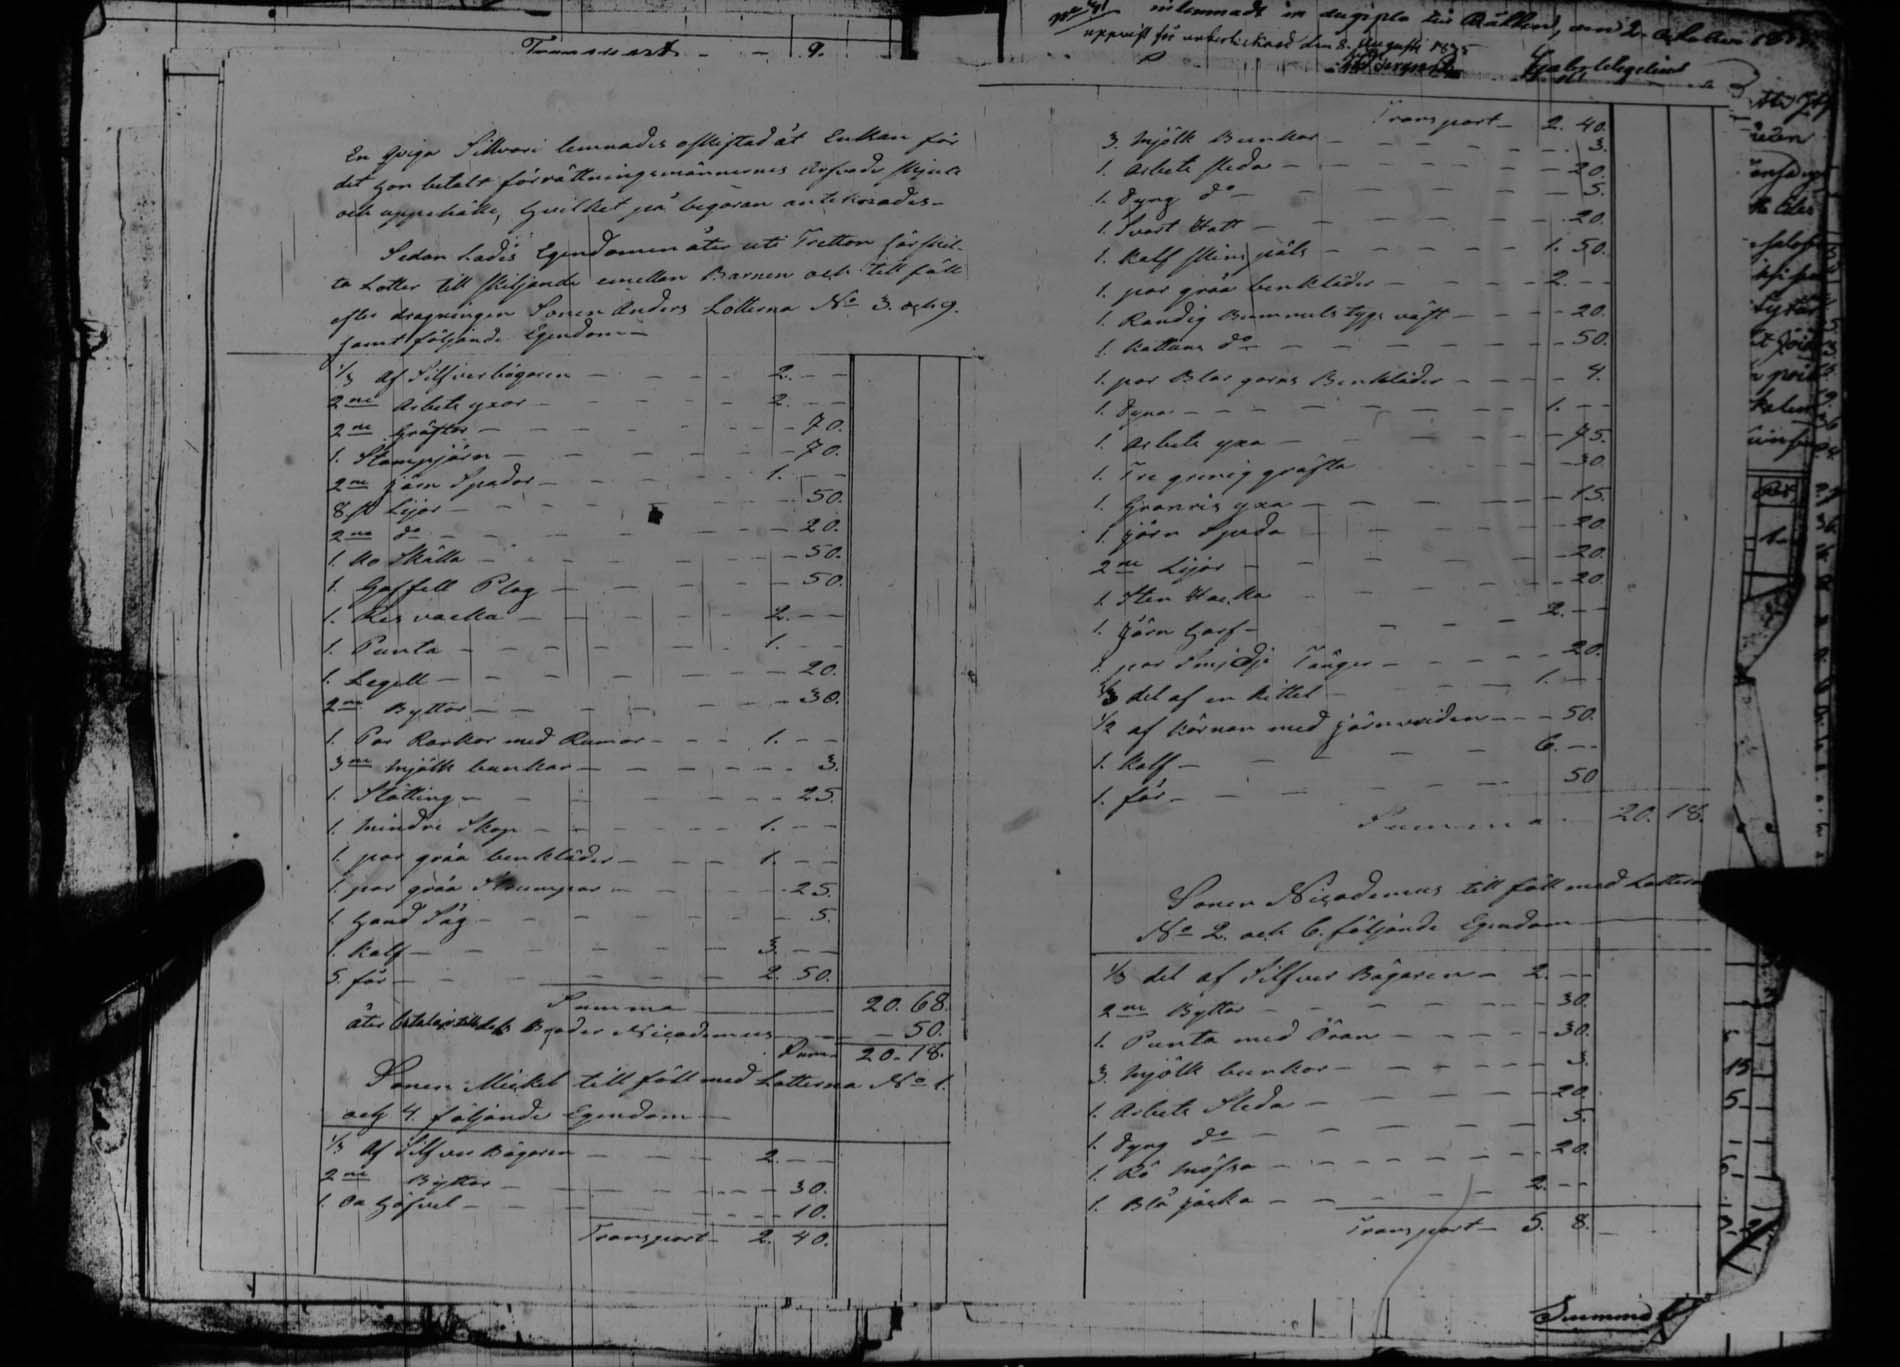 Transport - - 9.
En qviga Sillvari lemnades oskiftad åt Enkan för
det hon betalt förrättningsmännernes arfvode skjuts
och uppehälle, hvilket på begäran antecknades -
Sedan lades Egendomen åter uti Tretton särskil-
ta Lotter till skiljande emellan Barnen och till föll
efter dragningen Sonen Anders Lotterna No 3. och 9.
samt följande Egendom -
1/3 af Silfverbägaren - - - 2. - -
2ne Arbets yxor - - - 2. - -
2ne Gräftor - - - 70.
1. Stampjärn - - - 70.
2ne järn Spador - - - 1. - -
8 st Lijor - - - 50.
2ne do - - - 20.
1. Ko Skälla - - - 50.
1. Gaffell Plog - - - 50.
1. Res vacka - - - 2. - -
1. Punta - - - 1. - -
1. Legell - - - 20.
2ne Byttor - - - 30.
1. Par Rankor med Ramar - - - 1. - -
3ne Mjölk bunkar - - - 3.
1. Stötting - - - 25.
1. Mindre Skop - - - 1. - -
1. par gråa benkläder - - - 1. - -
1. par gråa Strumpor - - - 25.
1. Hand Såg - - - 5.
1. Kalf - - - 3. - -
5. får - - - 2. 50.
Summa 20. 68.
åter betalar till dess Broder Nicodemus - 50.
Sum- 20. 18.
Sonen Mickel till föll med Lotterna No 1.
och 4. följande Egendom -
1/3 Af Silfver Bägaren - - - 2. - -
2ne Byttor - - - 30.
1. - - - 10.
Transport - 2. 40.
inlemnade in duplo den 2. October
uppvist för den 8. Augusti 1835
Transport - 2. 40.
3. Mjölk Bunkar - - - 3.
1. Arbets släda - - - 20.
1. Dyng do - - - 5.
1. Svart Hatt - - - 20.
1. Kalf skins päls - - - 1. 50.
1. par gråa benkläder - - - 2. - -
1. Randig Bummuls tygs väst - - - 20.
1. Kattuns do - - - 50.
1. par Blår garns Benkläder - - - 4.
1. Dyna - - - 1. - -
1. Arbets yxa - - - 75.
1. Tre grenig gräfta - - - 30.
1. Granris yxa - - - 15.
1. järn Spada - - - 20.
2ne Lijor - - - 20.
1. Sten Hacka - - - 20.
1. Järn Harf - - - 2. - -
1. par Smidje Tänger - - - 20.
1/3 del af en kittel - - - 1. - -
1/2 af kärnan med järnvriden - - - 50.
1. Kalf - - - 6. - -
1. får - - - 50
Summa - 20. 18.
Sonen Nicodemus till föll med Lotterna
No 2. och 6. följande Egendom
1/3 del af Silfver Bägaren - 2. - -
2ne Byttor - - - 30.
1. Punta med Öron - - - 30.
3. Mjölk bunkar - - - 3.
1. Arbets Släda - - - 20.
1. Dyng do - - - 5.
1. Mössa - - - 20.
1. Blå jacka - - - 2. - -
Transport - 5. 8.
Summa